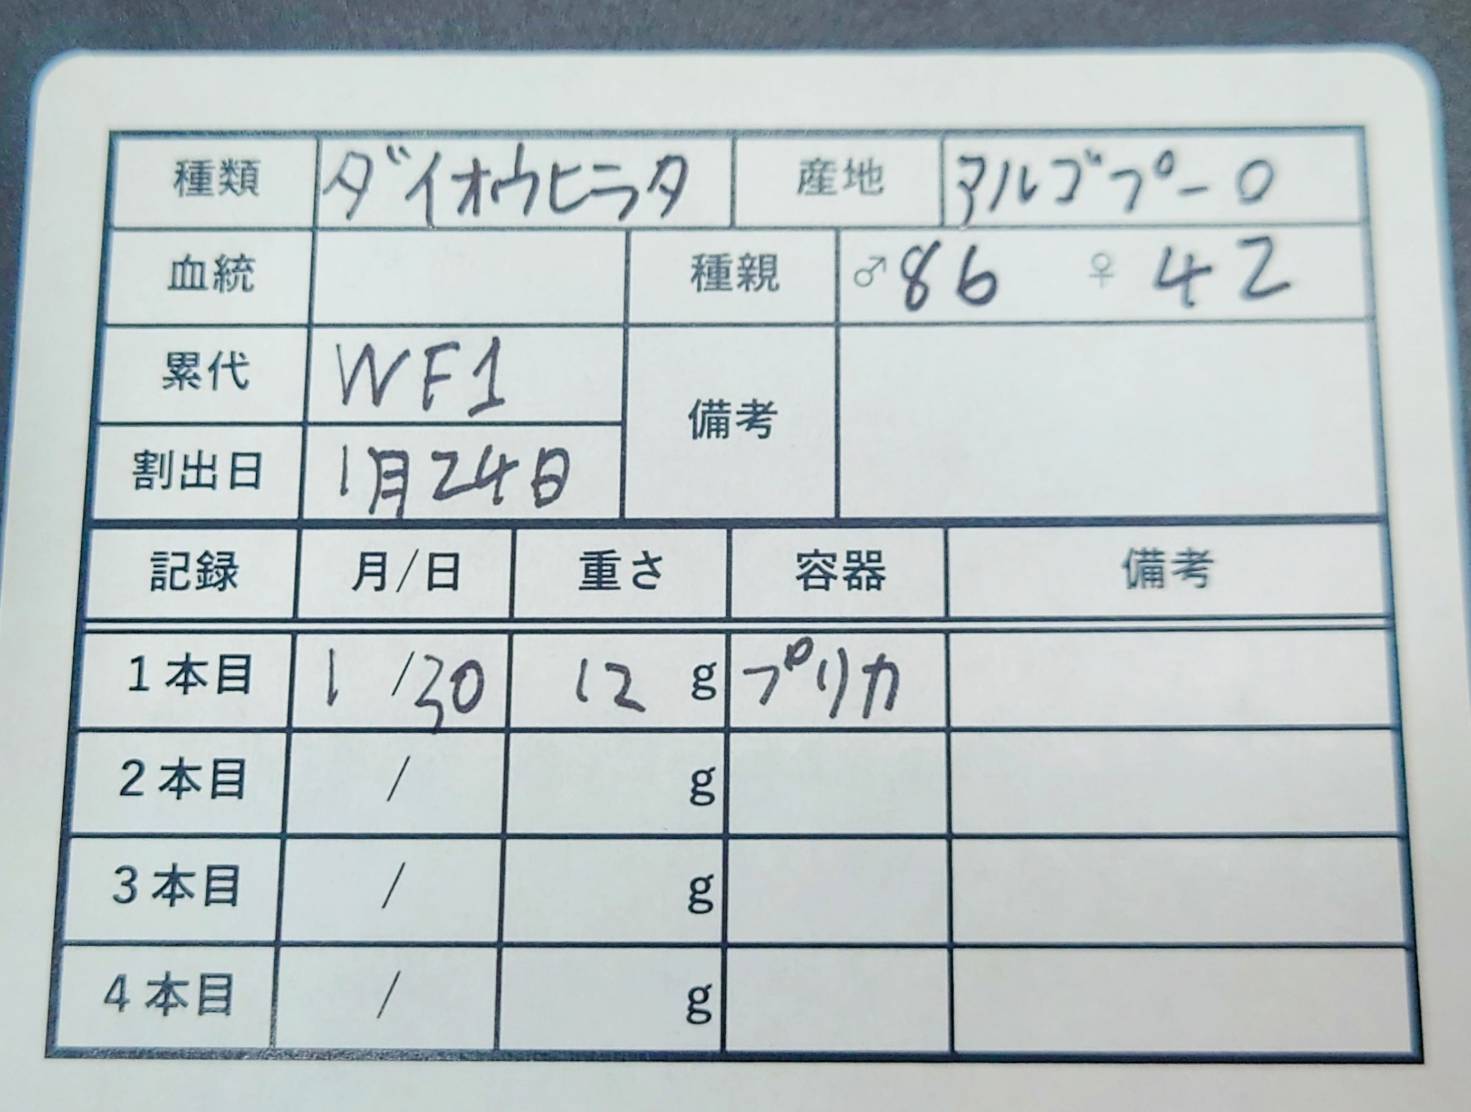 種類 ダイオウヒラタ 産地 アルゴプーロ
血統 種親 ♂86 ♀42
累代 WF1 備考
割出日 1月24日
記録 月/日 重さ 容器 備考
1本目 1/30 12g プリカ
2本目 / g
3本目 / g
4本目 / g